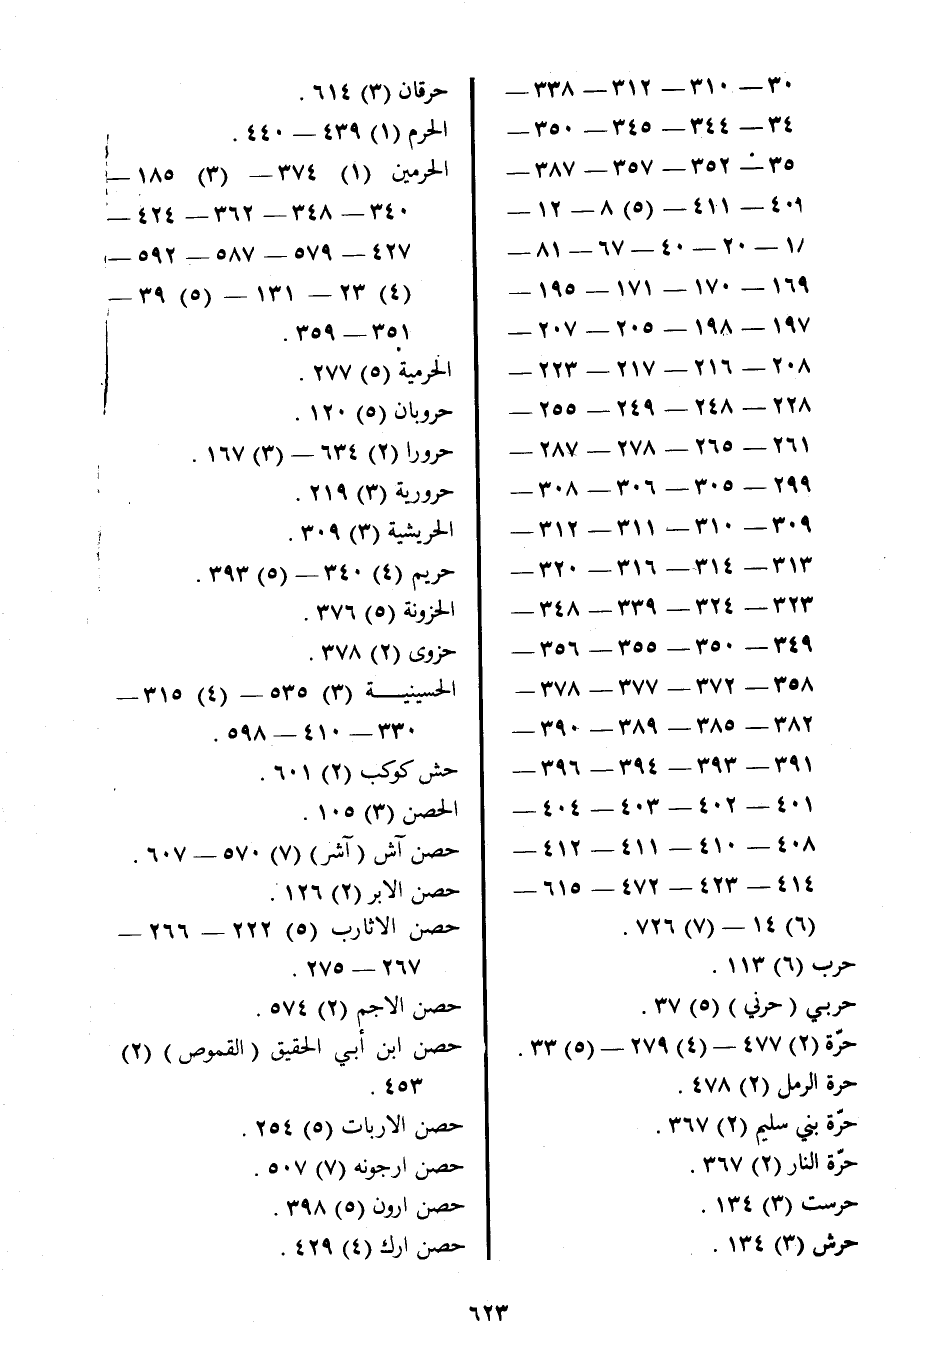 ٣٠ — ٣١٠ — ٣١٢ — ٣٣٨ —
٣٤ — ٣٤٤ — ٣٤٥ — ٣٥٠ —
٣٥ — ٣٥٢ — ٣٥٧ — ٣٨٧ —
٤٠٩ — ٤١١ — (٥) ٨ — ١٢ —
١/ — ٢٠ — ٤٠ — ٦٧ — ٨١ —
١٦٩ — ١٧٠ — ١٧١ — ١٩٥ —
١٩٧ — ١٩٨ — ٢٠٥ — ٢٠٧ —
٢٠٨ — ٢١٦ — ٢١٧ — ٢٢٣ —
٢٢٨ — ٢٤٨ — ٢٤٩ — ٢٥٥ —
٢٦١ — ٢٦٥ — ٢٧٨ — ٢٨٧ —
٢٩٩ — ٣٠٥ — ٣٠٦ — ٣٠٨ —
٣٠٩ — ٣١٠ — ٣١١ — ٣١٢ —
٣١٣ — ٣١٤ — ٣١٦ — ٣٢٠ —
٣٢٣ — ٣٢٤ — ٣٣٩ — ٣٤٨ —
٣٤٩ — ٣٥٠ — ٣٥٥ — ٣٥٦ —
٣٥٨ — ٣٧٢ — ٣٧٧ — ٣٧٨ —
٣٨٢ — ٣٨٥ — ٣٨٩ — ٣٩٠ —
٣٩١ — ٣٩٣ — ٣٩٤ — ٣٩٦ —
٤٠١ — ٤٠٢ — ٤٠٣ — ٤٠٤ —
٤٠٨ — ٤١٠ — ٤١١ — ٤١٢ —
٤١٤ — ٤٢٣ — ٤٧٢ — ٦١٥ —
(٦) ١٤ — (٧) ٧٢٦ .
حرب (٦) ١١٣ .
حربي ( حرني ) (٥) ٣٧ .
حرّة (٢) ٤٧٧ — (٤) ٢٧٩ — (٥) ٣٣ .
حرة الرمل (٢) ٤٧٨ .
حرّة بني سليم (٢) ٣٦٧ .
حرّة النار (٢) ٣٦٧ .
حرست (٣) ١٣٤ .
حرش (٣) ١٣٤ .
حرقان (٣) ٦١٤ .
الحرم (١) ٤٣٩ — ٤٤٠ .
الحرمين (١) ٣٧٤ — (٣) ١٨٥ —
٣٤٠ — ٣٤٨ — ٣٦٢ — ٤٢٤ —
٤٢٧ — ٥٧٩ — ٥٨٧ — ٥٩٢ —
(٤) ٢٣ — ١٣١ — (٥) ٣٩ —
٣٥١ — ٣٥٩ .
الحرمية (٥) ٢٧٧ .
حروبان (٥) ١٢٠ .
حرورا (٢) ٦٣٤ — (٣) ١٦٧ .
حرورية (٣) ٢١٩ .
الحريشية (٣) ٣٠٩ .
حريم (٤) ٣٤٠ — (٥) ٣٩٣ .
الحزونة (٥) ٣٧٦ .
حزوى (٢) ٣٧٨ .
الحسينيــة (٣) ٥٣٥ — (٤) ٣١٥ —
٣٣٠ — ٤١٠ — ٥٩٨ .
حش كوكب (٢) ٦٠١ .
الحصن (٣) ١٠٥ .
حصن آش ( آشر ) (٧) ٥٧٠ — ٦٠٧ .
حصن الابر (٢) ١٢٦ .
حصن الاثارب (٥) ٢٢٢ — ٢٦٦ —
٢٦٧ — ٢٧٥ .
حصن الاجم (٢) ٥٧٤ .
حصن ابن أبي الحقيق ( القموص ) (٢)
٤٥٣ .
حصن الاربات (٥) ٢٥٤ .
حصن ارجونه (٧) ٥٠٧ .
حصن ارون (٥) ٣٩٨ .
حصن ارك (٤) ٤٢٩ .
٦٢٣